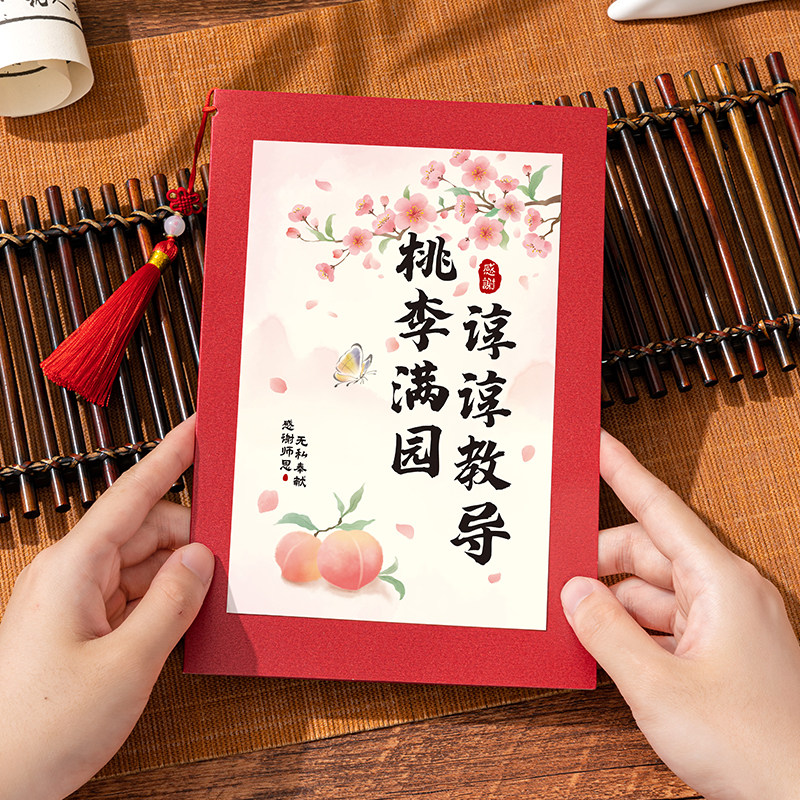 感謝
谆谆教导
桃李满园
无私奉献
感谢师恩